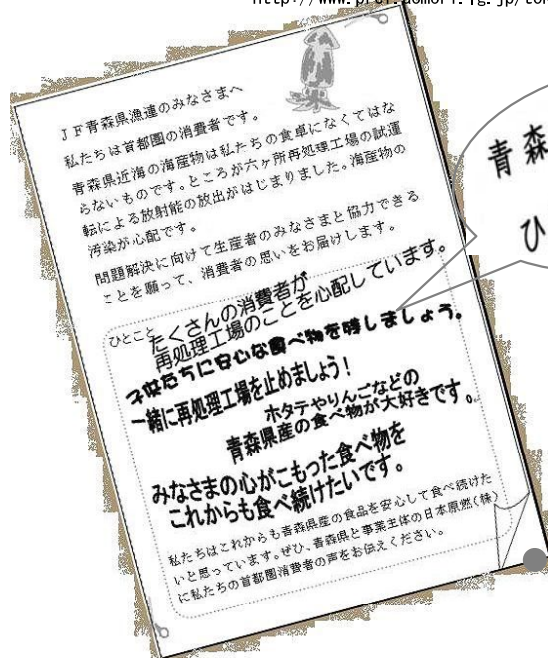 JF青森県漁連のみなさまへ
私たちは首都圏の消費者です。
青森県近海の海産物は私たちの食卓になくてはな
らないものです。ところが六ヶ所再処理工場の試運
転による放射能の放出がはじまりました。海産物の
汚染が心配です。
問題解決に向けて生産者のみなさまと協力できる
ことを願って、消費者の思いをお届けします。
ひとこと
たくさんの消費者が
再処理工場のことを心配しています。
子供たちに安心な食べ物を残しましょう。
一緒に再処理工場を止めましょう!
ホタテやりんごなどの
青森県産の食べ物が大好きです。
みなさまの心がこもった食べ物を
これからも食べ続けたいです。
私たちはこれからも青森県産の食品を安心して食べ続けた
いと思っています。ぜひ、青森県と事業主体の日本原燃(株)
に私たちの首都圏消費者の声をお伝えください。
青森
ひ